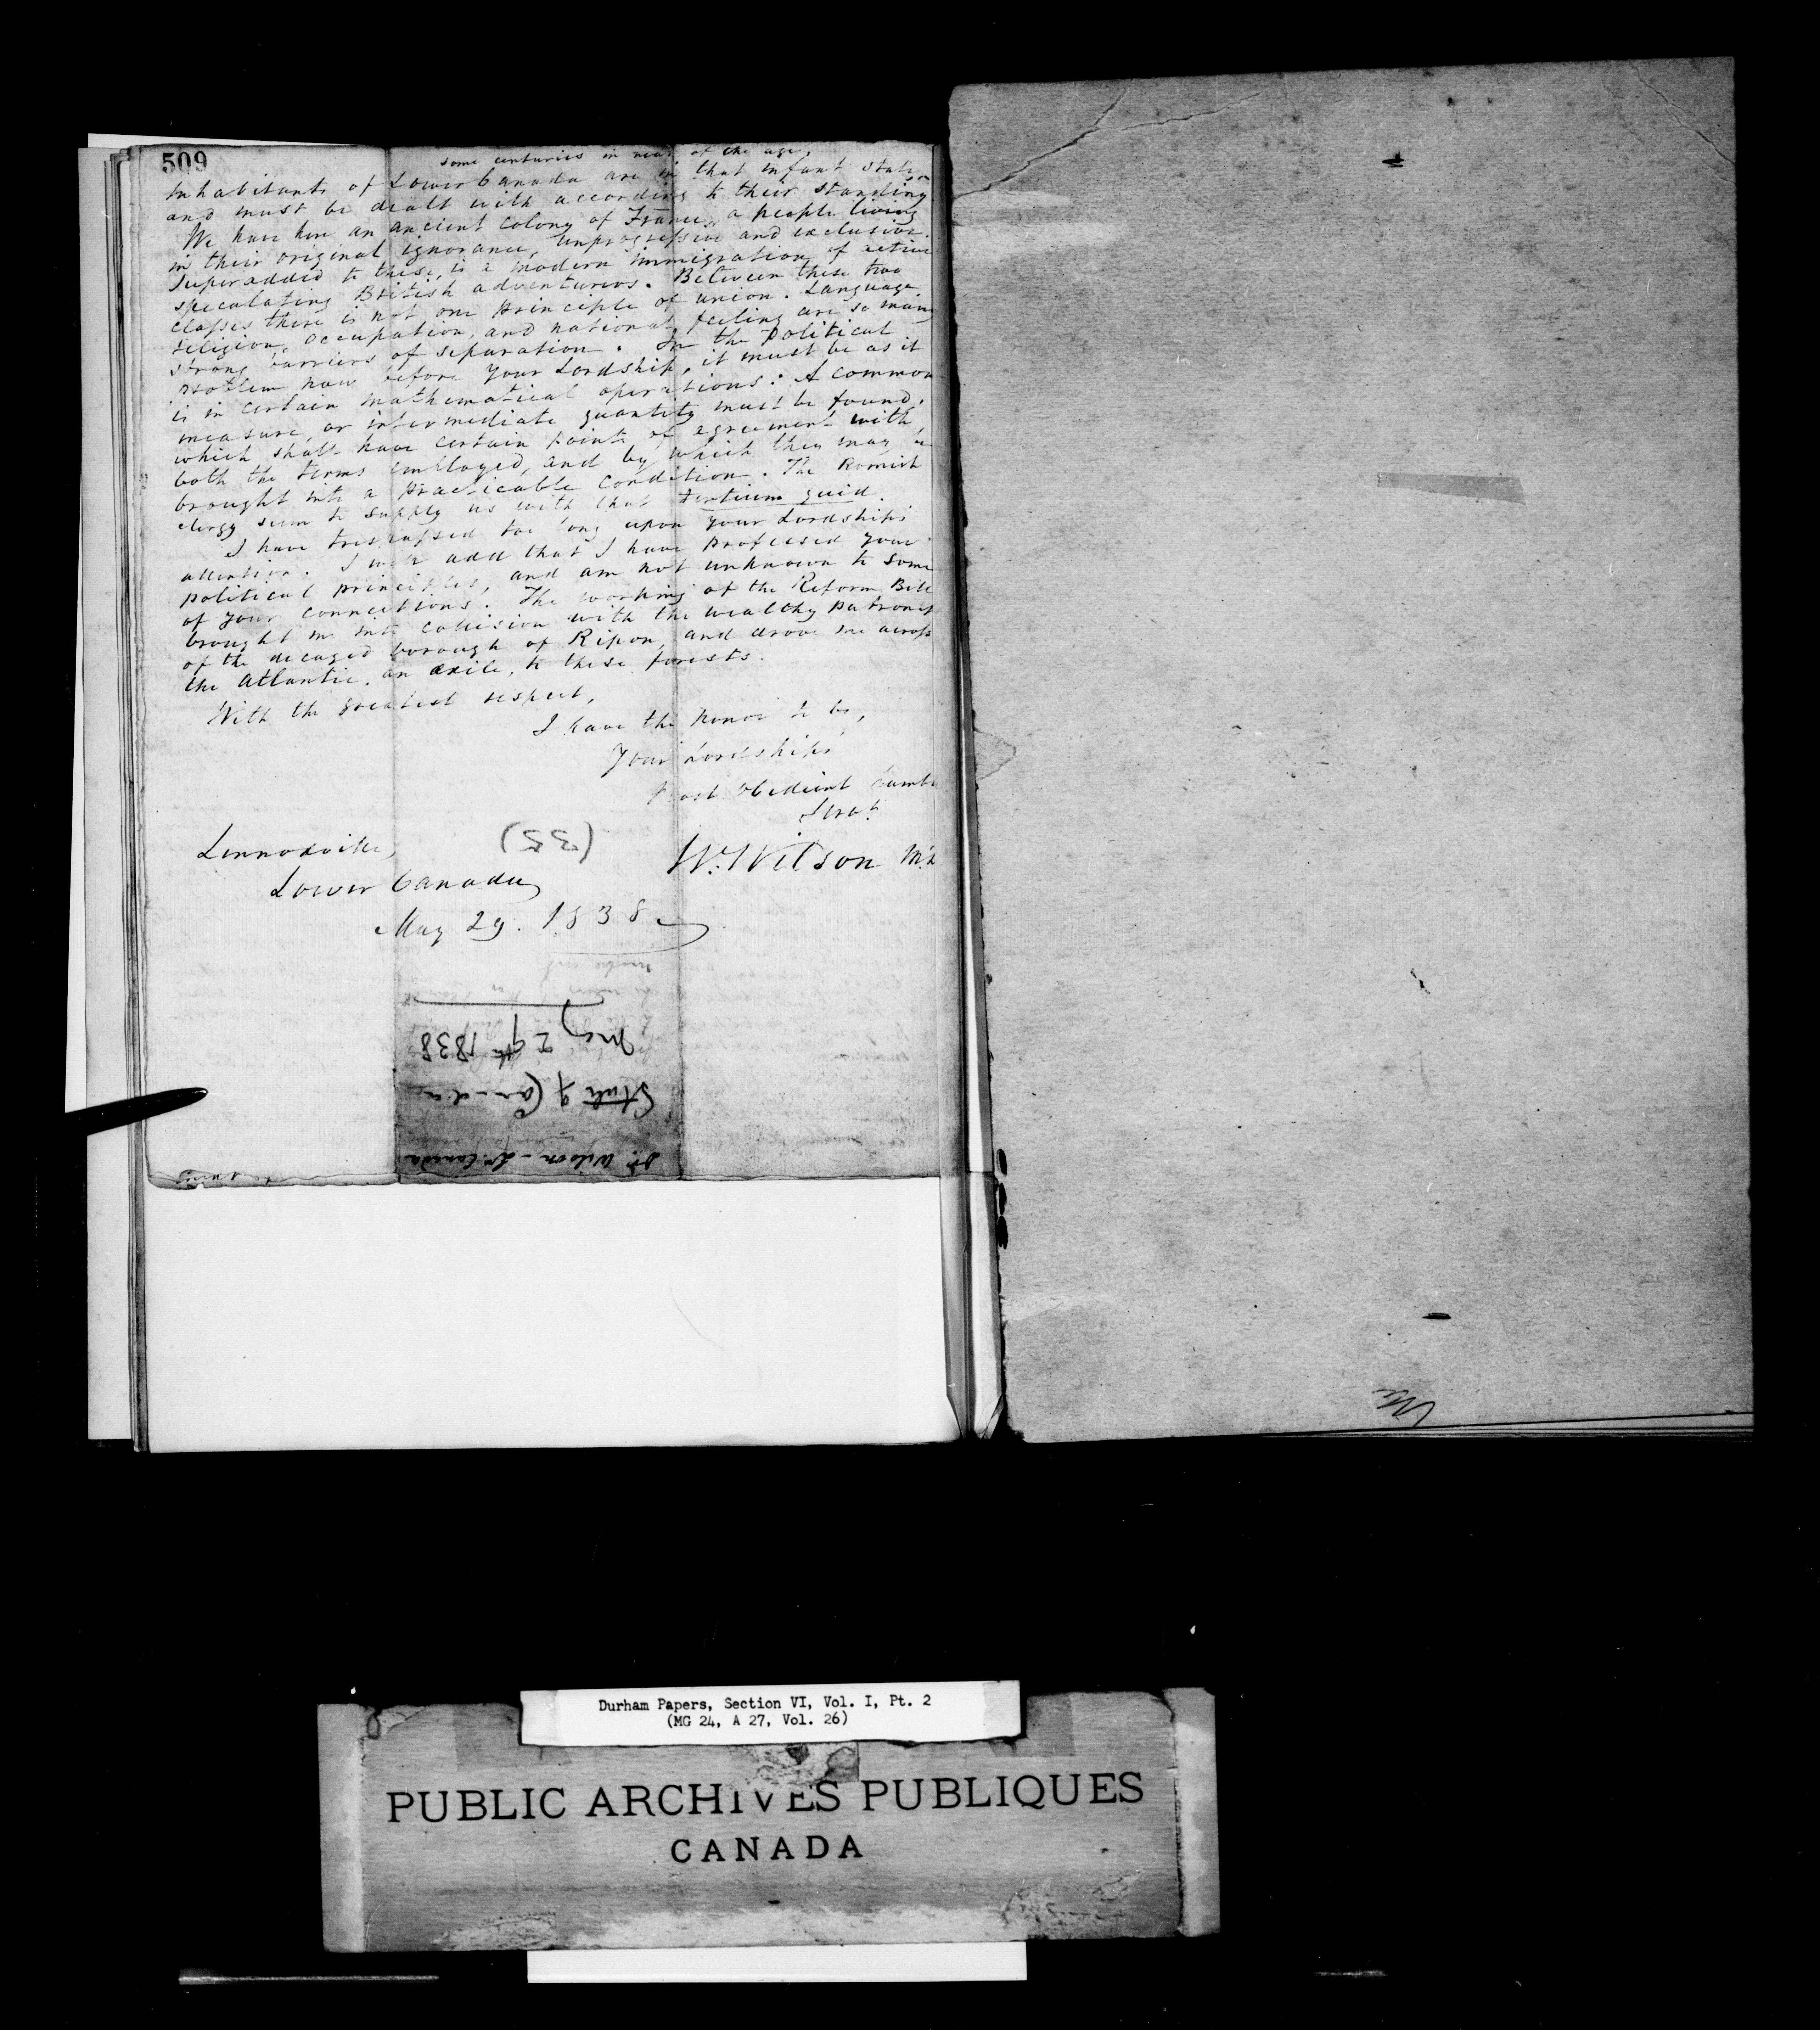 509
some centuries in rear of the age,
Inhabitants of Lower Canada are in that infant state,
and must be dealt with according to their standing
We have here an ancient Colony of France, a people living
in their original ignorance, unprogressive and exclusive.
Superadded to these, is a modern immigration of active
speculating British adventurers. Between these two
classes there is not one principle of union. Language
religion, occupation, and national feeling are so many
strong barriers of separation. In the political
problem now before your Lordship, it must be as it
is in certain mathematical operations: A common
measure, or intermediate quantity must be found,
which shall have certain points of agreement with
both the terms employed, and by which they may be
brought into a practicable condition. The Romish
clergy seem to supply us with that tertium quid.
I have trespassed too long upon your Lordship's
attention. I will add that I have professed your
political principles, and am not unknown to some
of your connections. The working of the Reform Bill
brought me into collision with the wealthy patroness
of the decayed borough of Ripon, and drove me across
the Atlantic, an exile, to these forests.
With the greatest respect,
I have the honor to be,
Your Lordship's
Most obedient humble
Servt.
Wm. Wilson
Lennoxville,
(35)
Lower Canada
May 29. 1838
Dr. Wilson - Lr. Canada
State of Canada
May 29th 1838
Durham Papers, Section VI, Vol. I, Pt. 2
(MG 24, A 27, Vol. 26)
PUBLIC ARCHIVES PUBLIQUES
CANADA